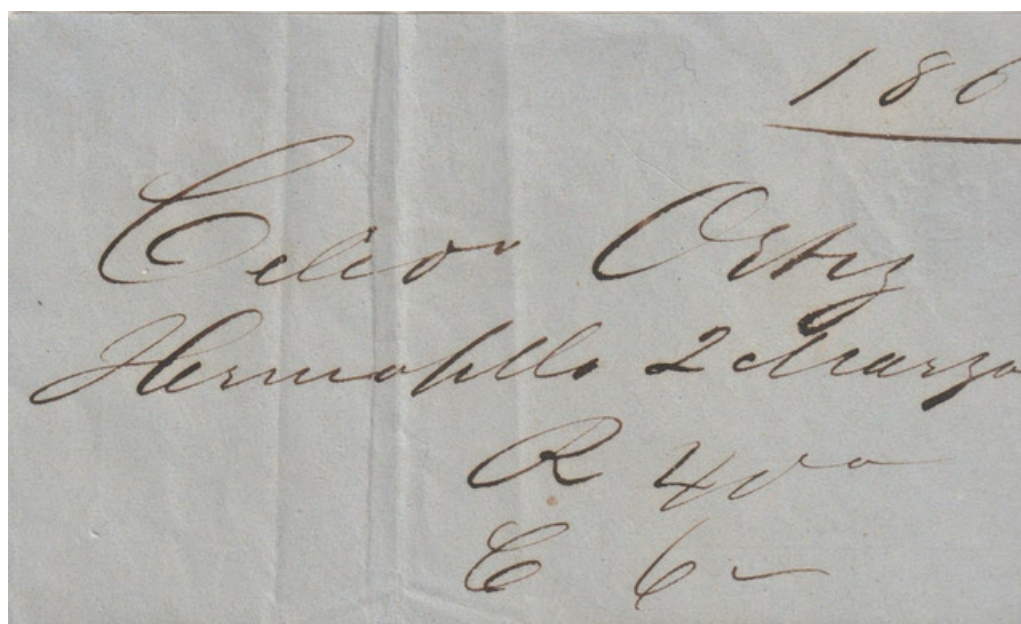 186
Celedo Ortiz
Hermosillo 2 Marzo
R 4 do
C 6